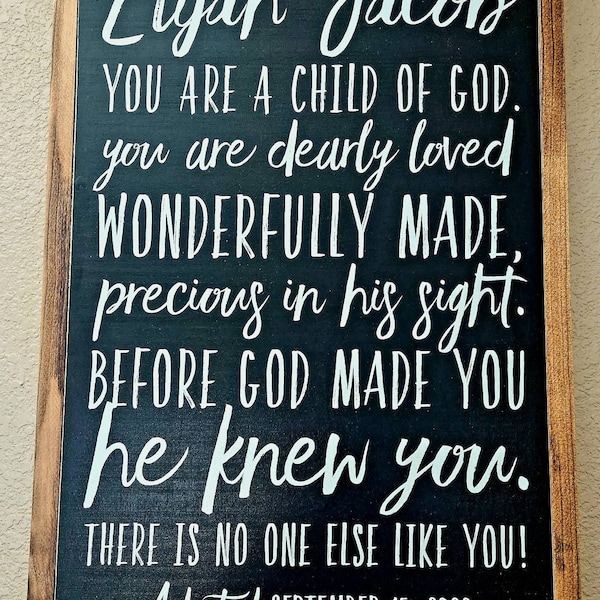 Elijah Jacob
YOU ARE A CHILD OF GOD.
you are dearly loved
WONDERFULLY MADE,
precious in his sight.
BEFORE GOD MADE YOU
he knew you.
THERE IS NO ONE ELSE LIKE YOU!
SEPTEMBER